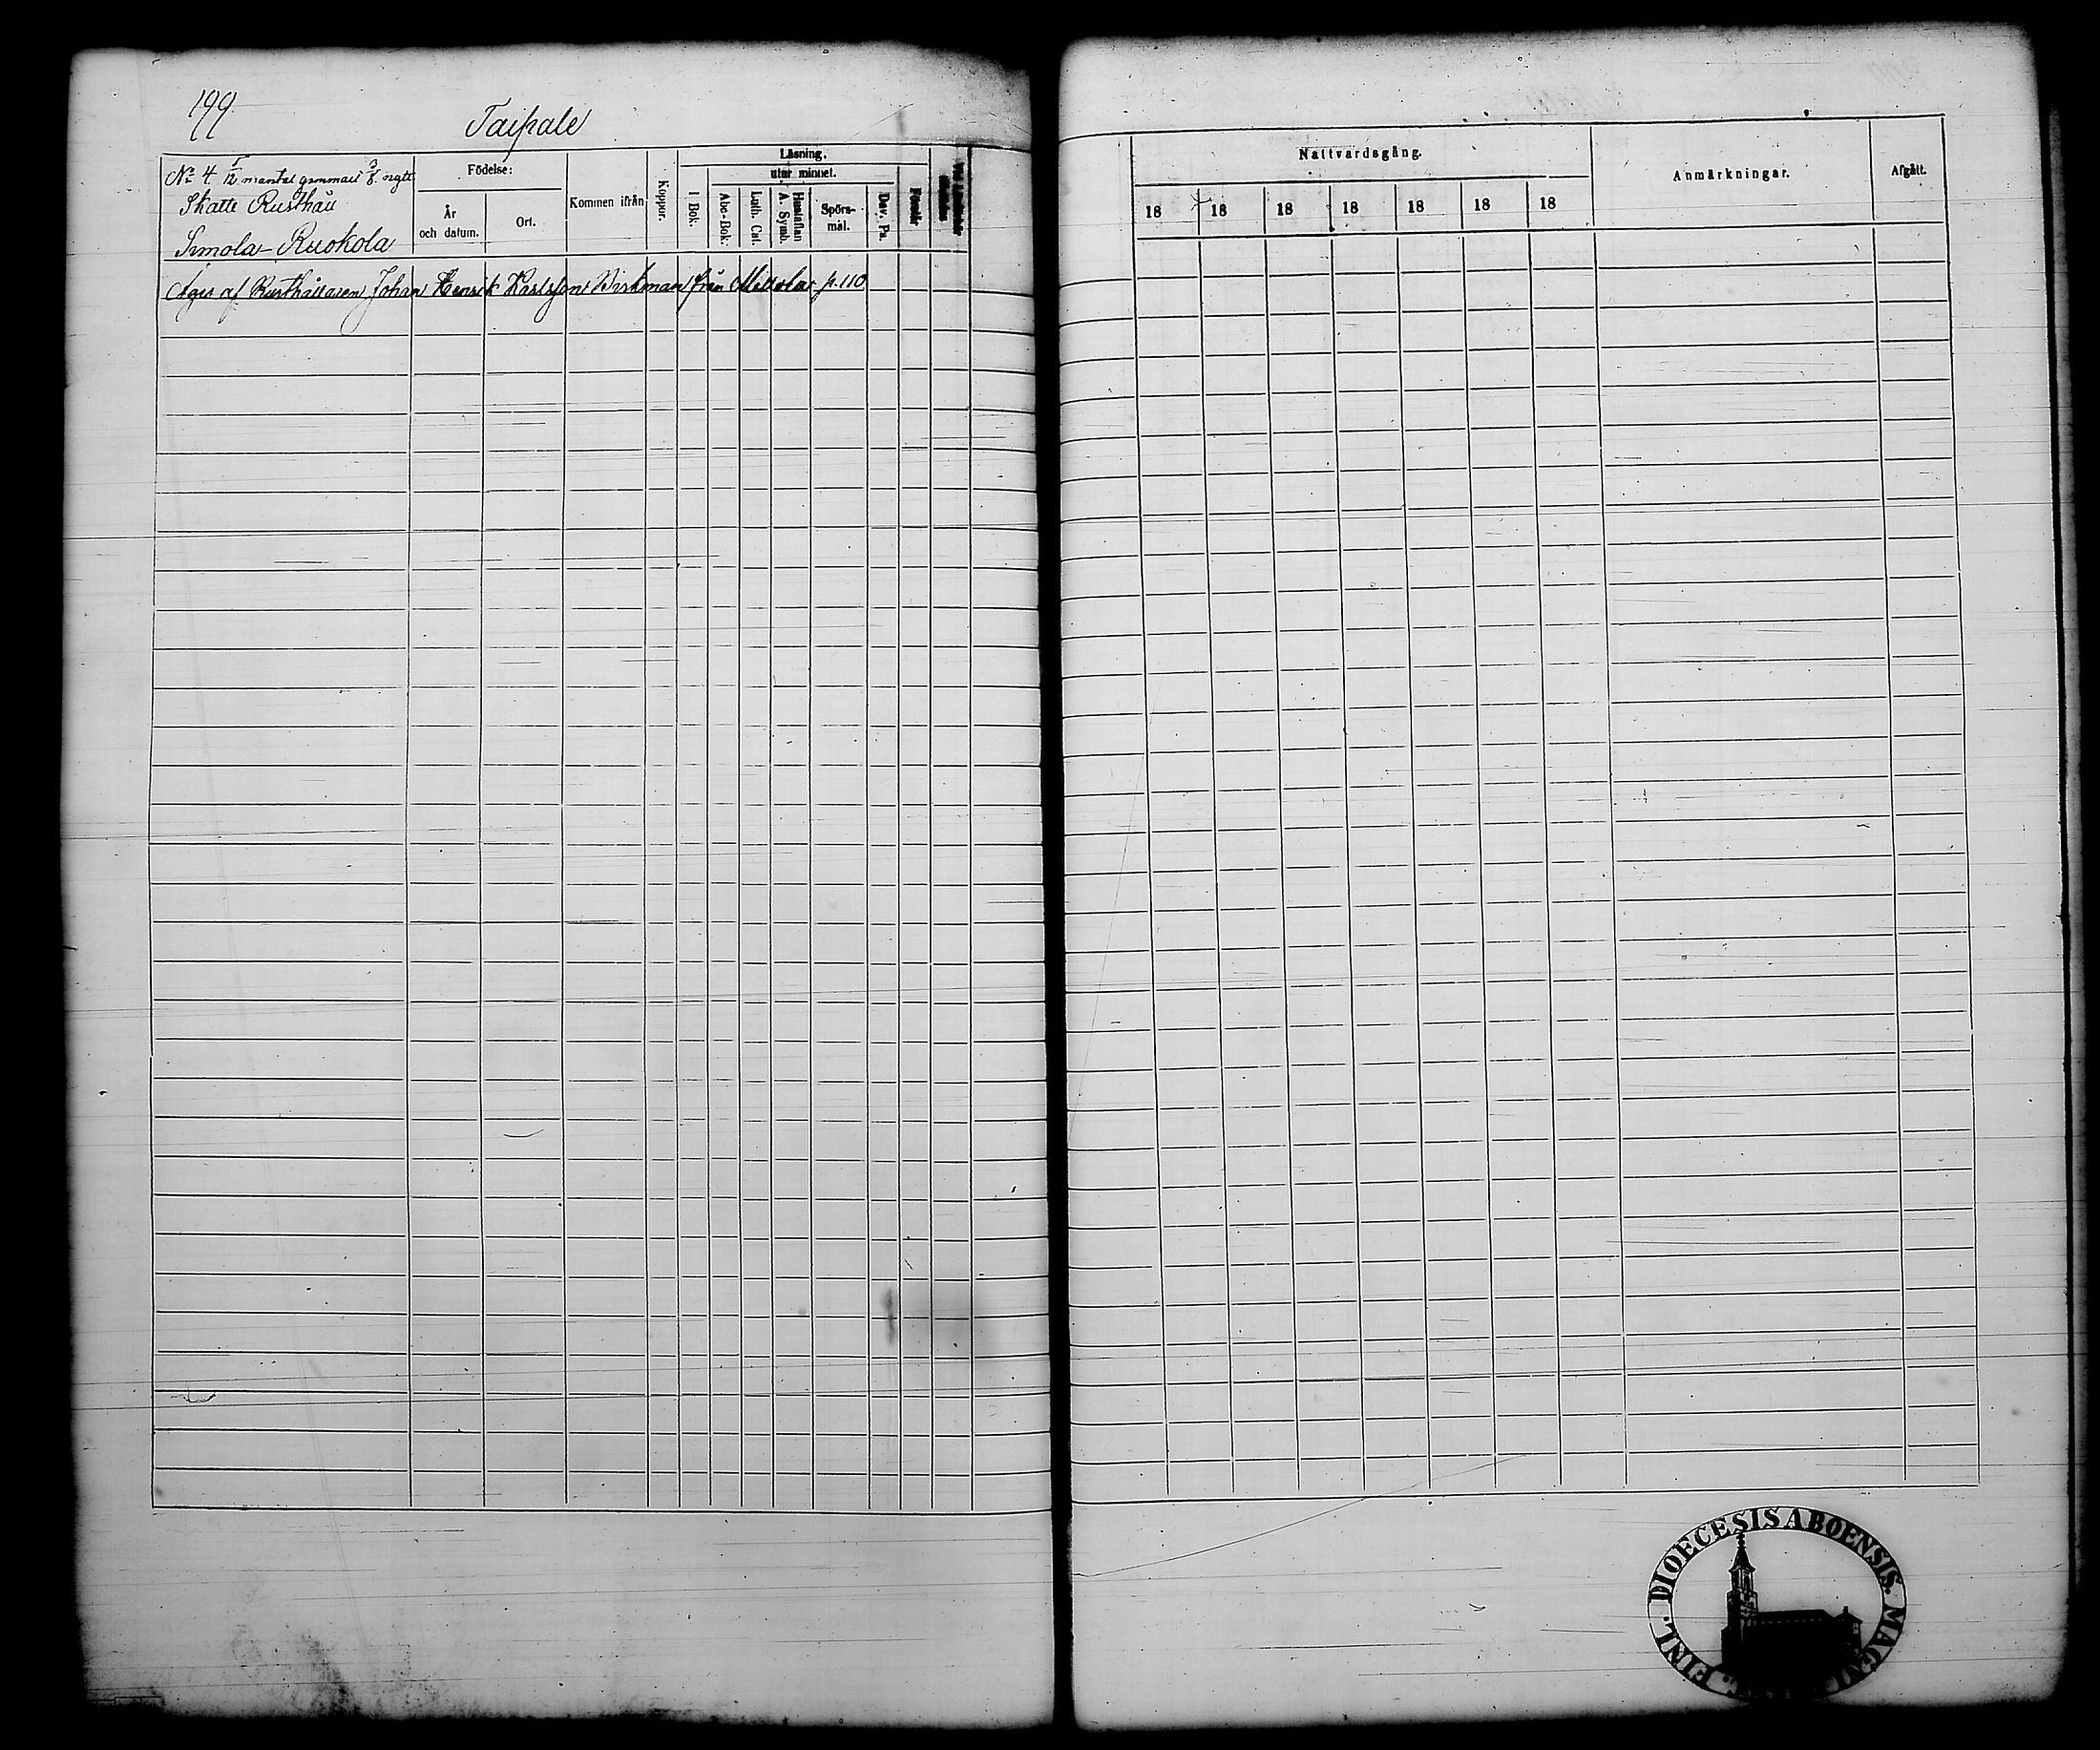 199.
Taipale
№ 4 5/12 mantal gammalt 3/8 nytt
Skatte Rusthåll
Simola-Ruokola
Födelse:
År
och datum.
Ort.
Kommen ifrån
Koppor.
Läsning.
I Bok.
utur minnet.
Abc-Bok.
Luth. Cat.
Hustaflan
A. Symb.
Spörs-
mål.
Dav. Ps.
Förstår
Äges af Rusthållaren Johan Henrik Karlsson Birkman från p. 110
Nattvardsgång.
18 18 18 18 18 18 18
Anmärkningar.
Afgått.
DIOECESIS ABOENSIS. MAGNI FINL.